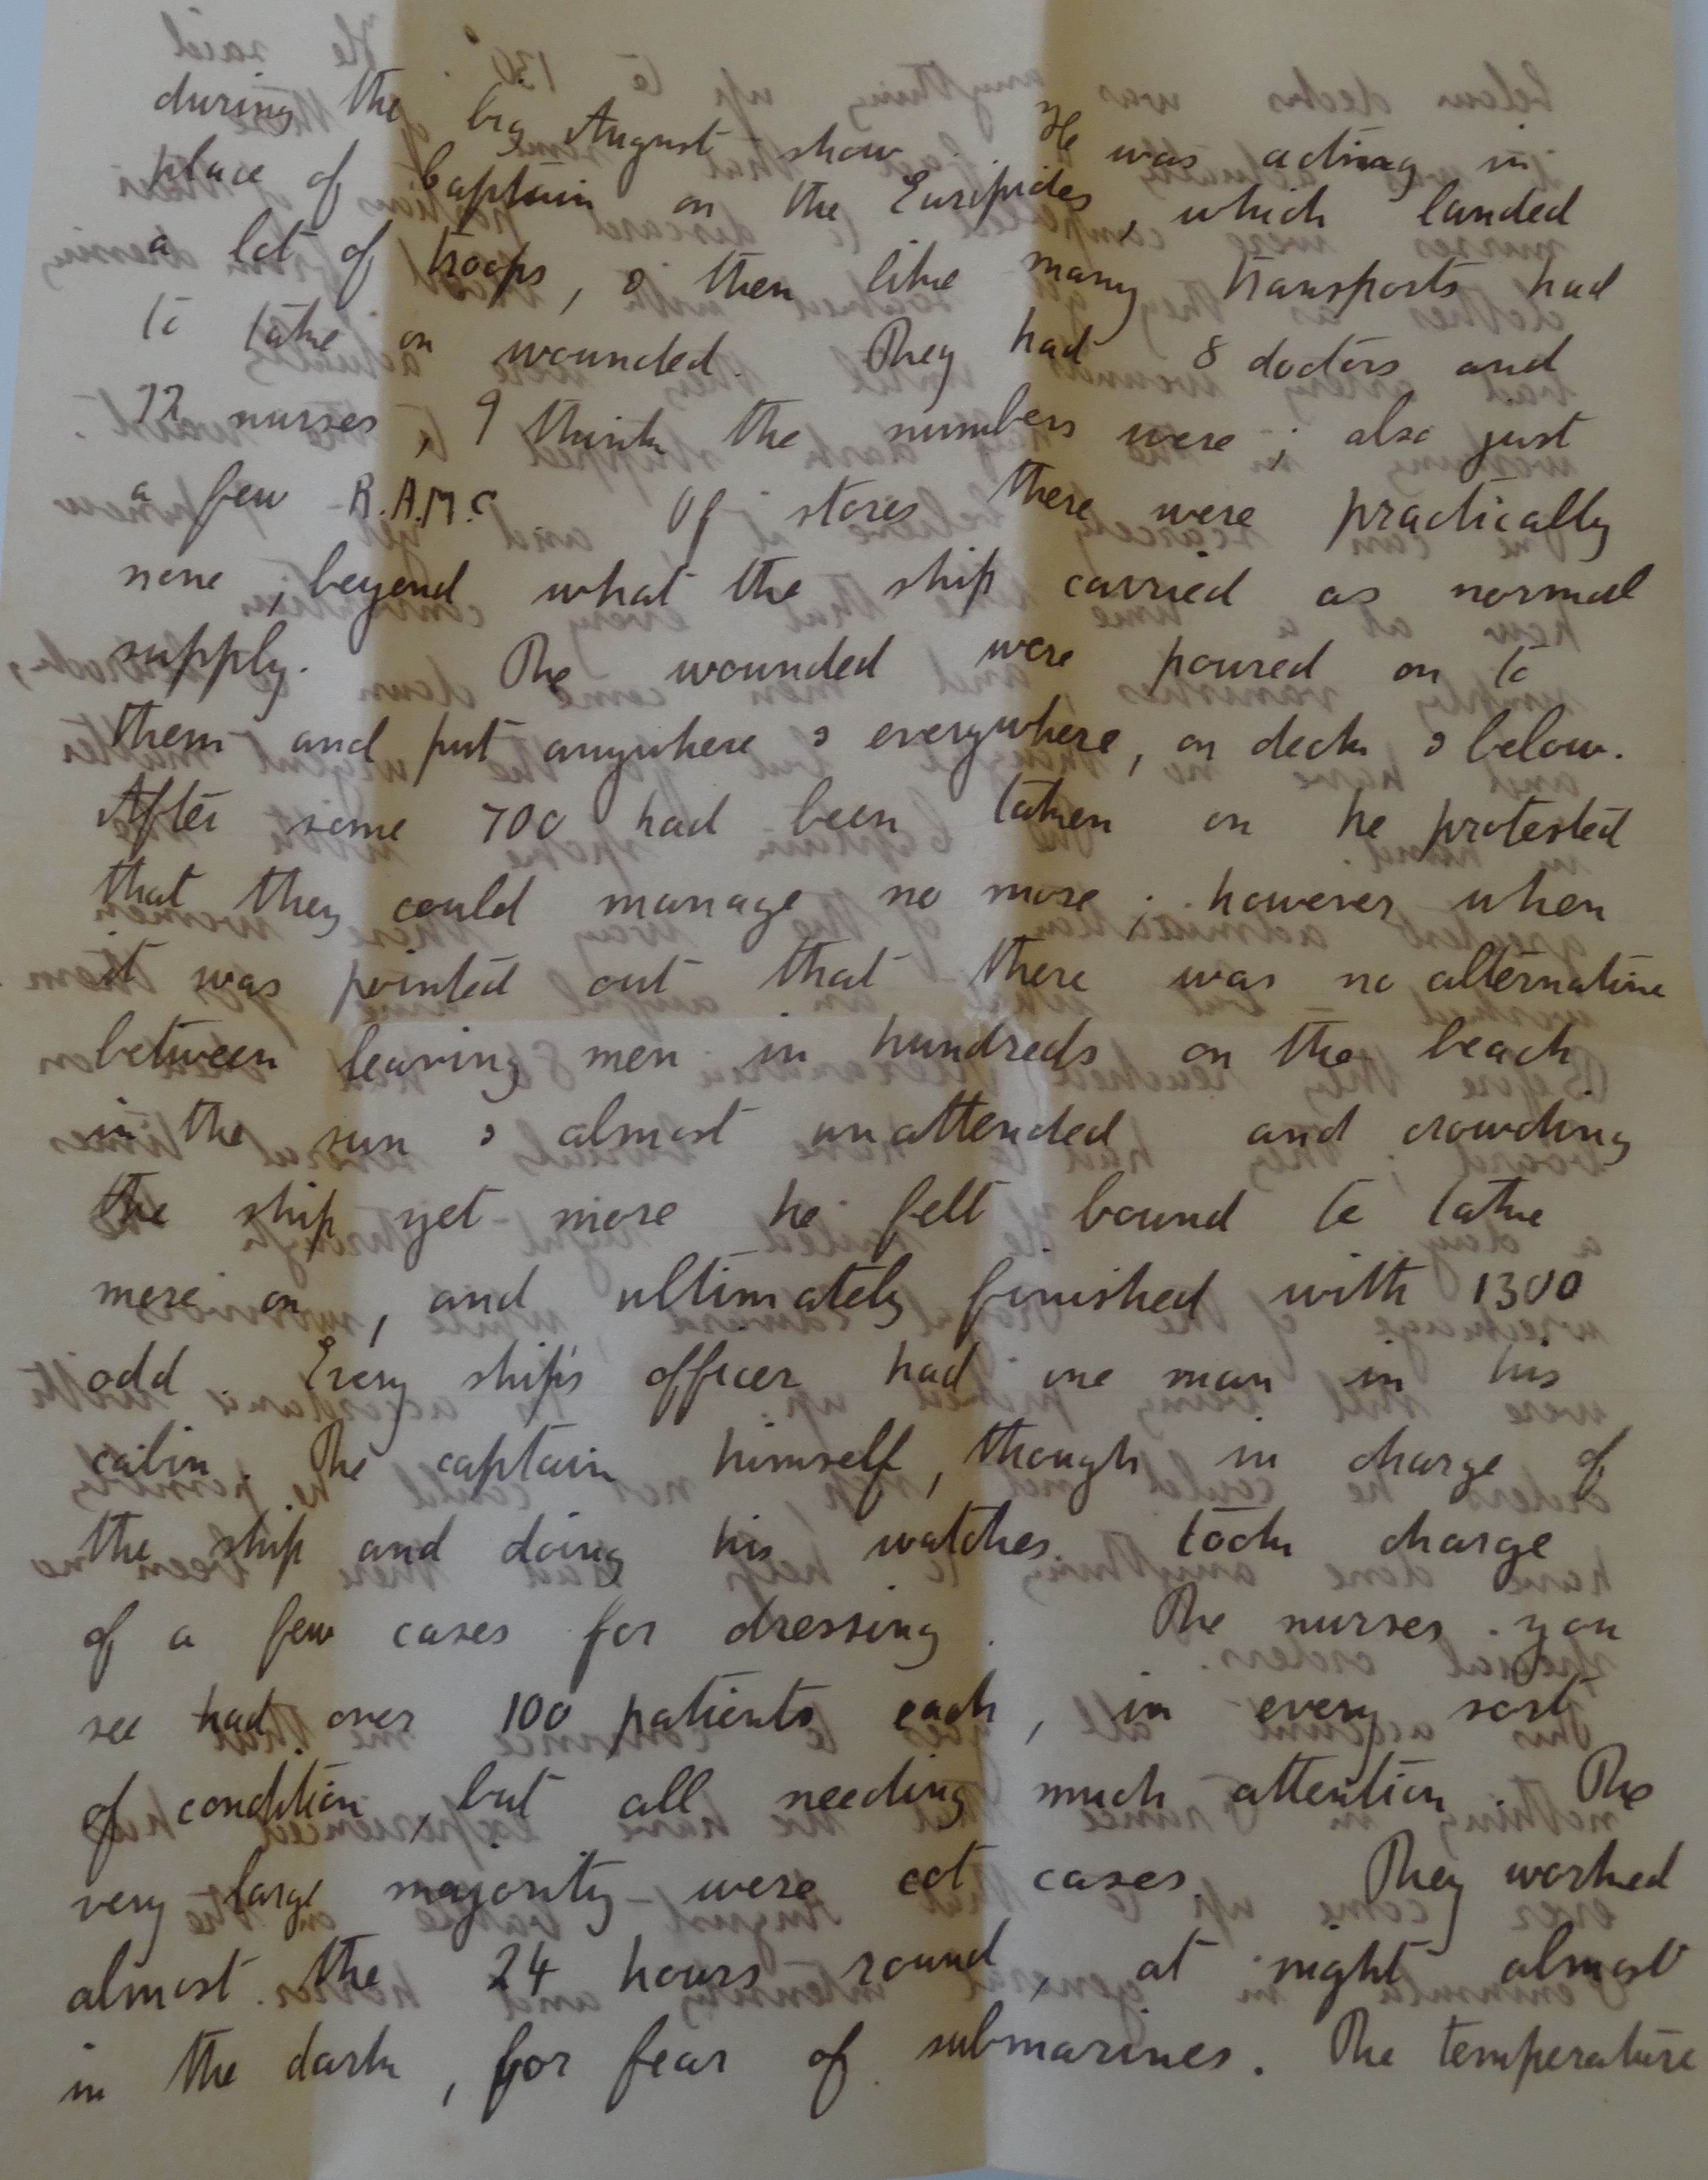 during the big August show. He was acting in
place of Captain on the Euripides, which landed
a lot of troops, & then like many transports had
to take on wounded. They had 8 doctors and
12 nurses, I think the numbers were; also just
a few R.A.M.C. Of stores there were practically
none, beyond what the ship carried as normal
supply. The wounded were poured on to
them and put anywhere & everywhere, on deck & below.
After some 700 had been taken on he protested
that they could manage no more; however when
it was pointed out that there was no alternative
between leaving men in hundreds on the beach
in the sun & almost unattended and crowding
the ship yet more he felt bound to take
more on, and ultimately finished with 1300
odd. Every ship's officer had one man in his
cabin. The captain himself, though in charge of
the ship and doing his watches took charge
of a few cases for dressing. The nurses you
see had over 100 patients each, in every sort
of condition, but all needing much attention. The
very large majority were cot cases. They worked
almost the 24 hours round, at night almost
in the dark, for fear of submarines. The temperature